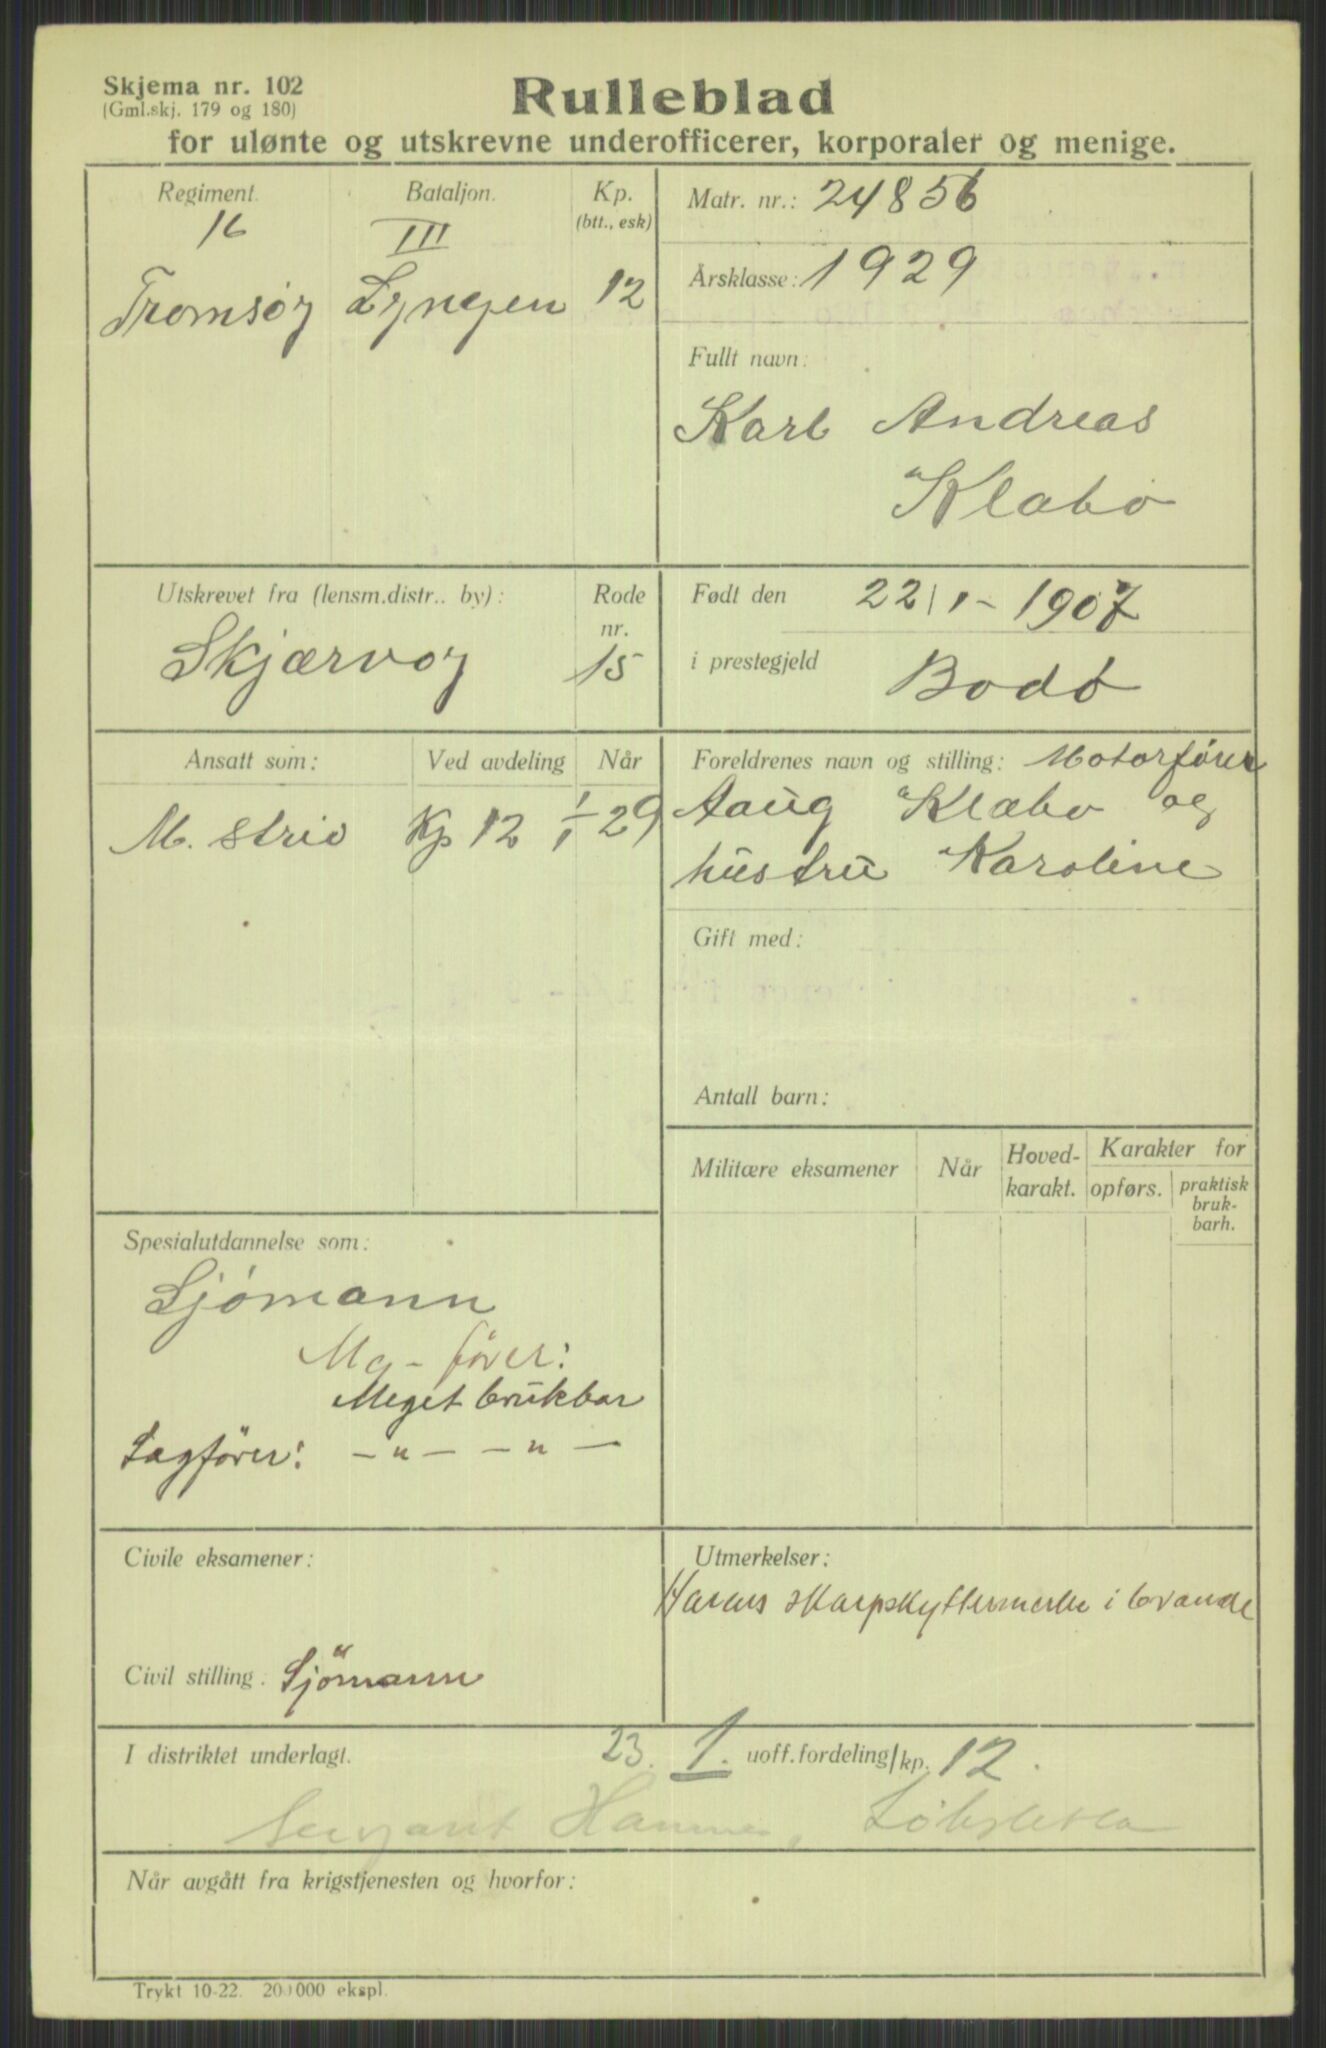 Skjema nr. 102
(Gml.skj. 179 og 180)
Rulleblad
for ulønte og utskrevne underofficerer, korporaler og menige.
Regiment.
Bataljon.
Kp.
(btt., esk)
16
III
Tromsøy
Lyngen
12
Matr. nr.: 24856
Årsklasse: 1929
Fullt navn:
Karl Andreas
Klabo
Utskrevet fra (lensm.distr.. by):
Rode
nr.
Skjærvoy
15
Født den 22/1 - 1907
i prestegjeld Bodó
Ansatt som:
Ved avdeling
Når
M. strid Kp 12 1/1 29
Foreldrenes navn og stilling: Motorfører
Aaug Klæbo og
hustru Karoline
Gift med:
Antall barn:
Militære eksamener
Når
Hoved-
karakt.
Karakter for
opførs.
praktisk
bruk-
barh.
Spesialutdannelse som:
Sjómann
Mg - fører:
Meget brukbar
Lagfører: - " - - " -
Civile eksamener:
Civil stilling: Sjömann
Utmerkelser:
Hærens skarpskyttermerke i bronse
I distriktet underlagt.
23. 1. uoff.fordeling/kp. 12.
Sergant
Når avgått fra krigstjenesten og hvorfor:
Trykt 10-22. 200000 ekspl.